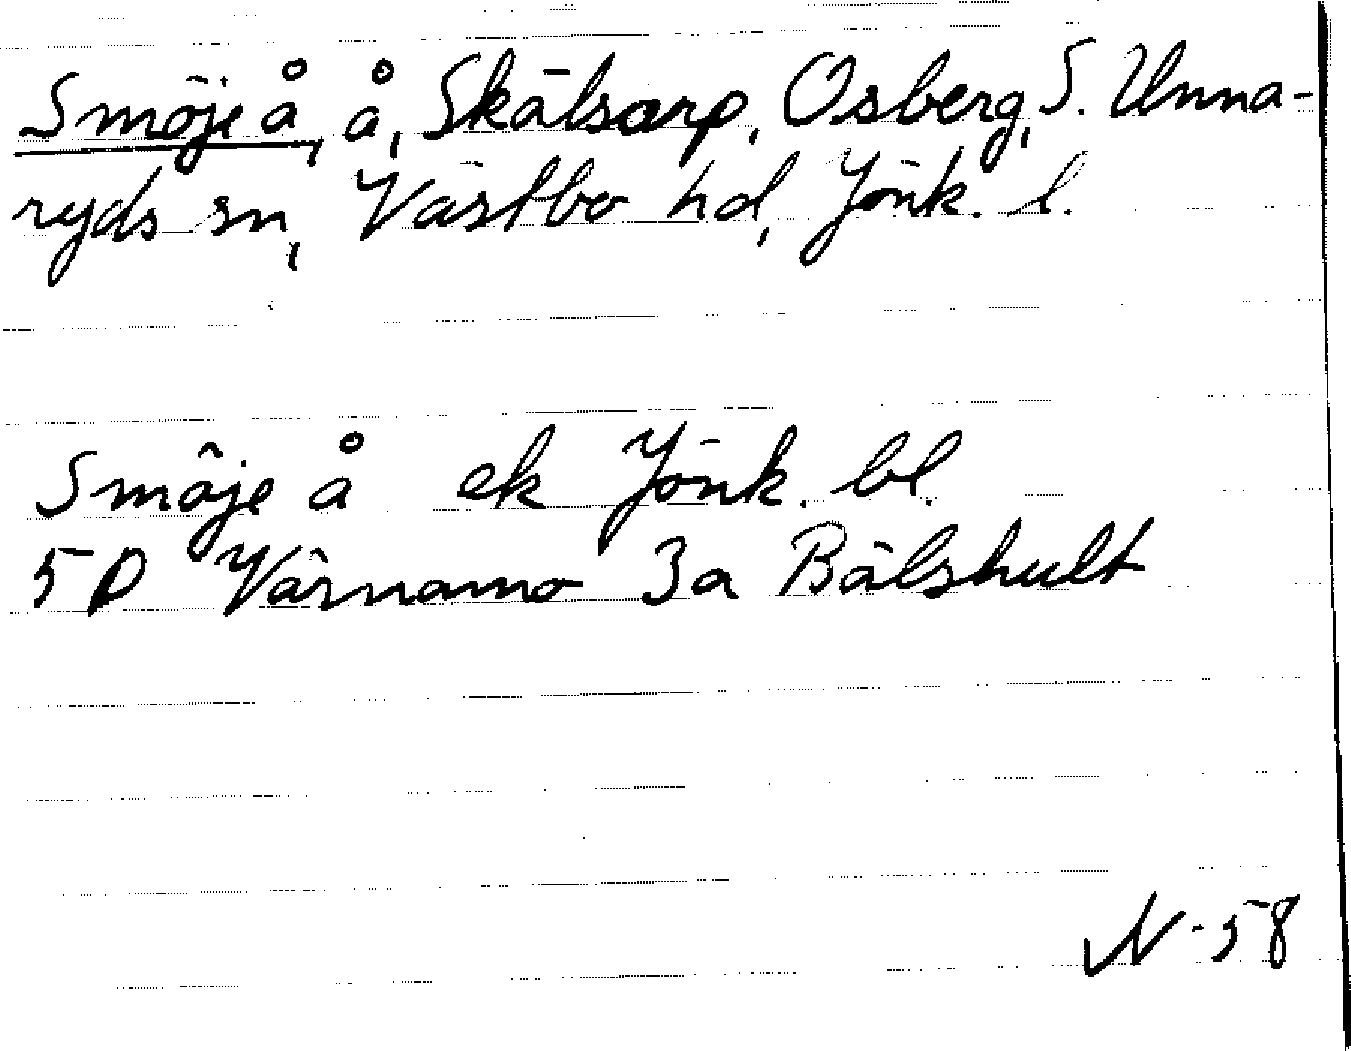 Smöje å, å, Skälsarp, Osberg, S. Unna-
ryds sn, Västbo hd, Jönk. l.
Smöje å ek Jönk. bl.
5D Värnamo 3a Bälshult
N-58